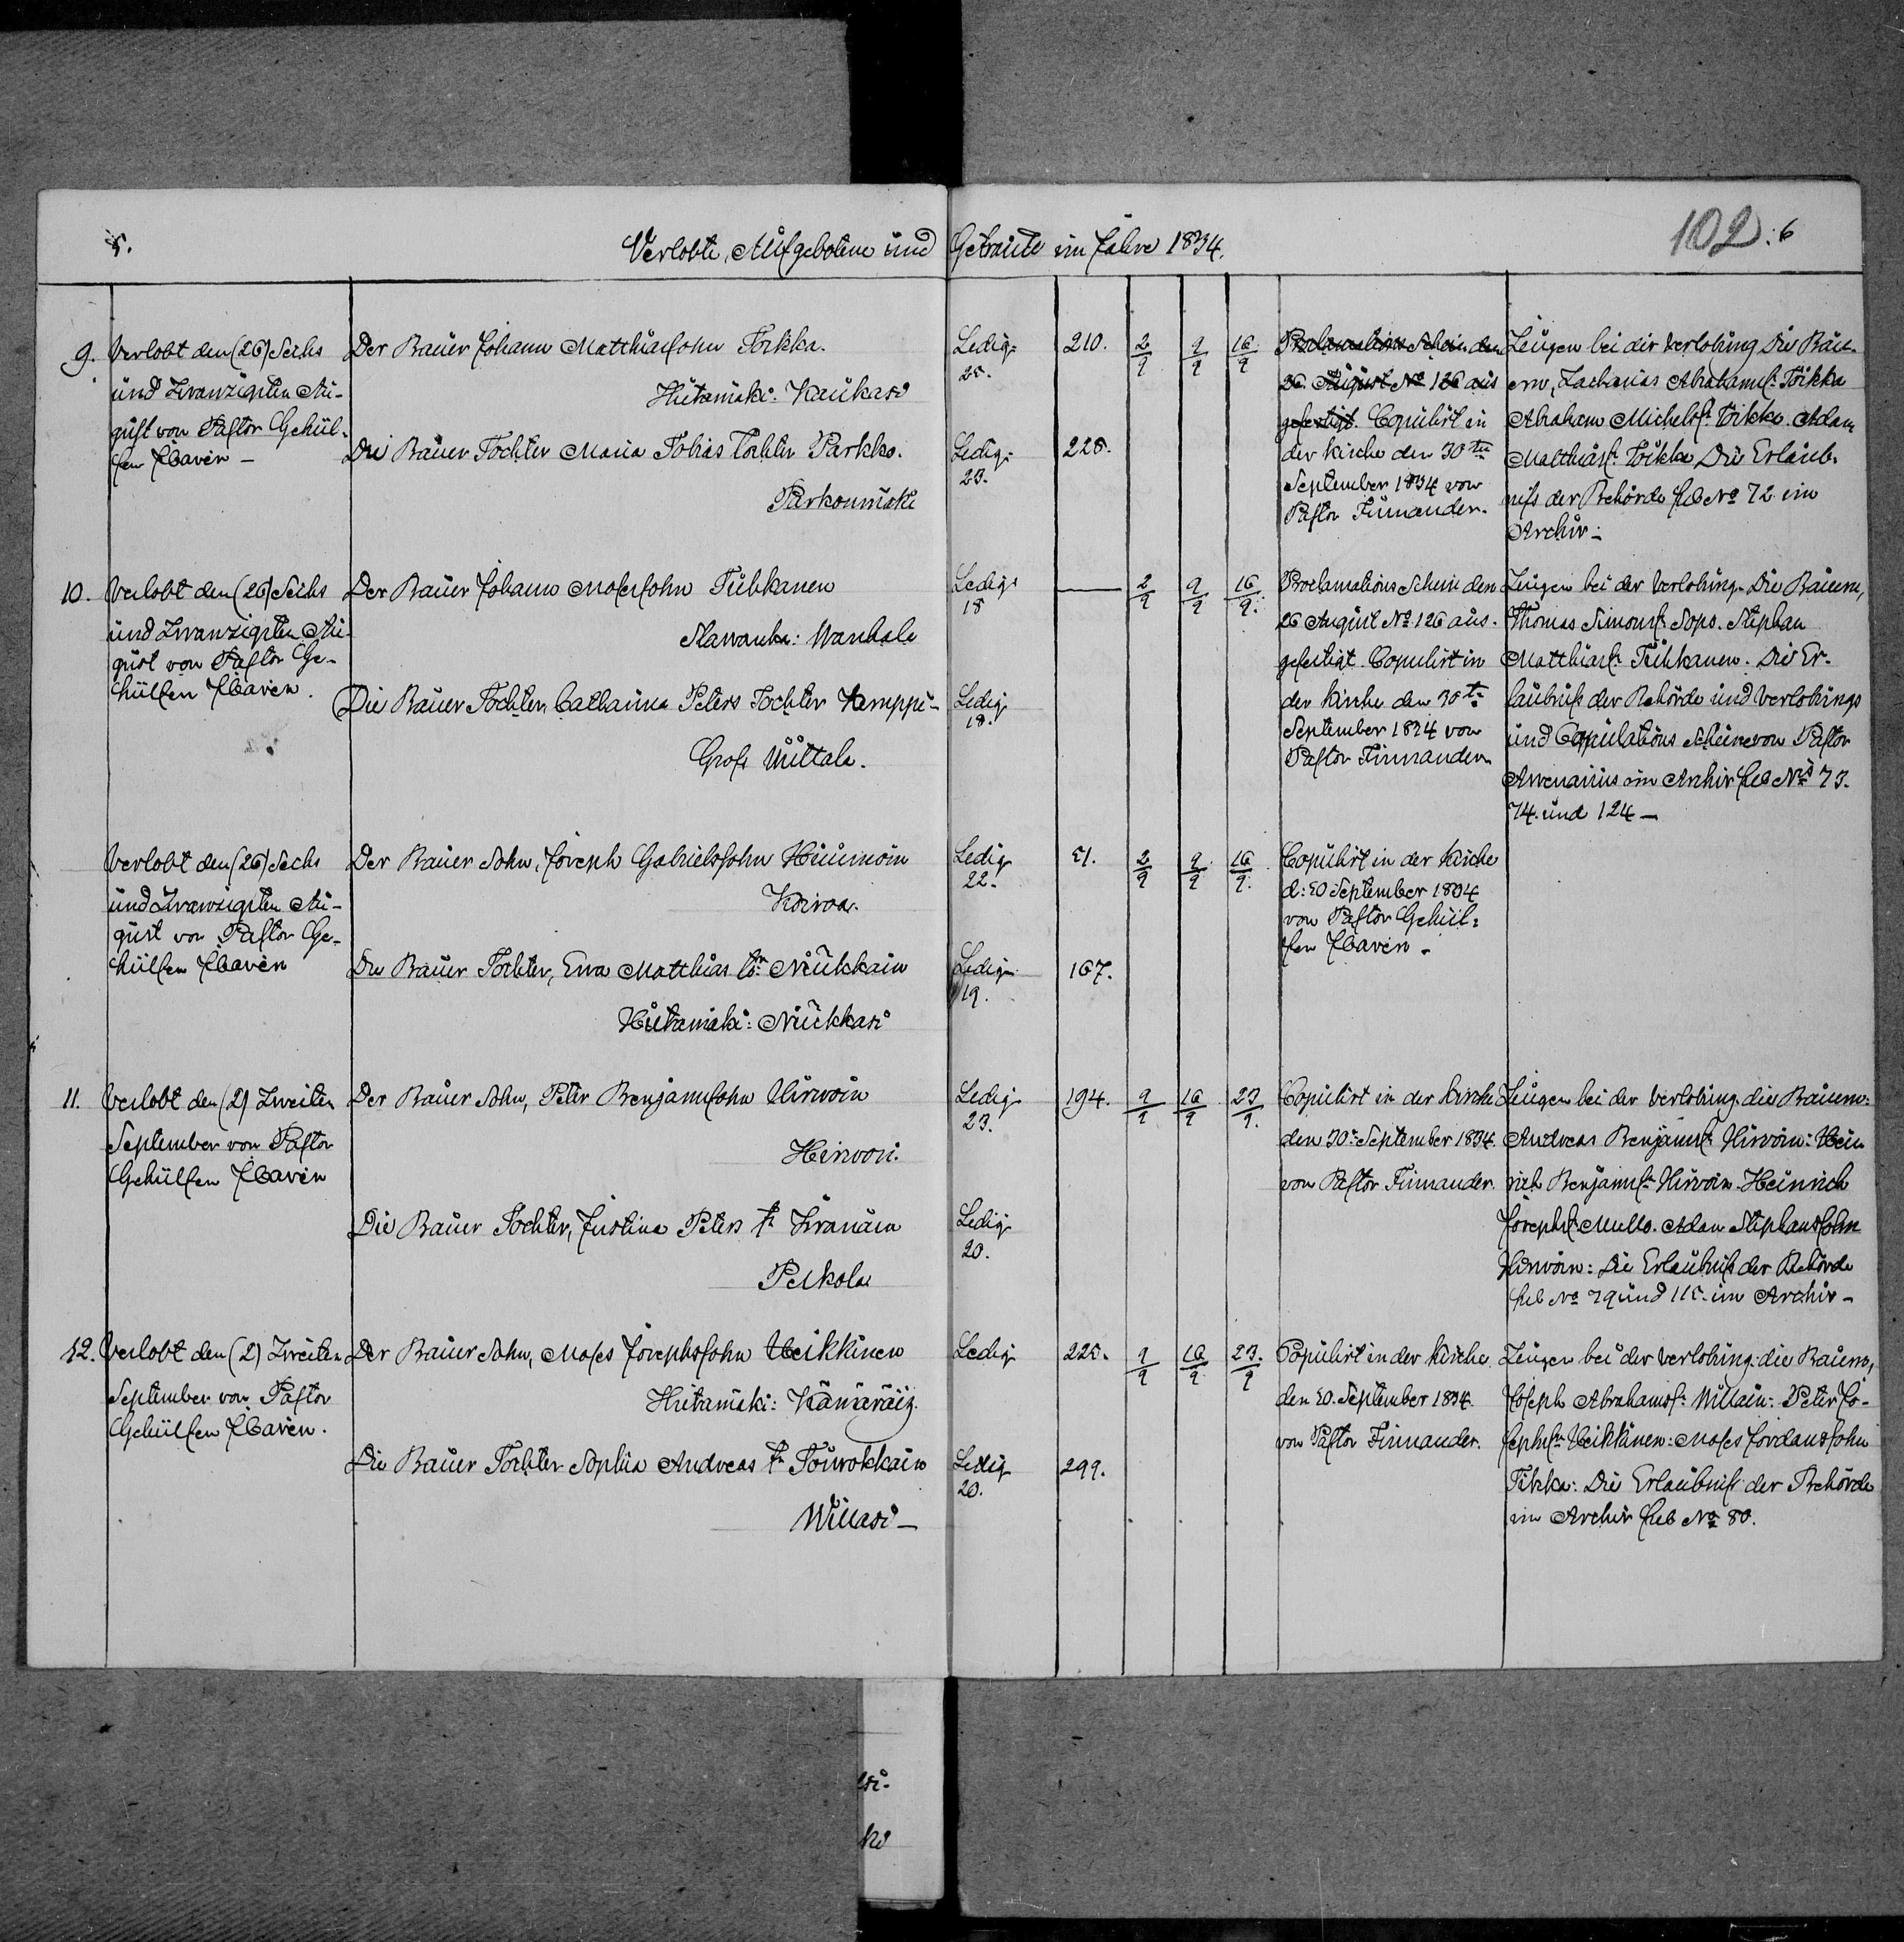 5.
Verlobte, Aufgebotene und Getraute im Jahre 1834.
102 : 6
9. Verlobt den (26) Sechs
und Zwanzigsten Au-
gust von Pastor Gehül-
fen Havén —
Der Bauer Johann Matthiassohn Toikka.
Hütamäki: Kaukasi
Die Bauer Tochter Maria Tobias Tochter Parkko.
Parkoumäki
Ledig
25.
Ledig
23.
210.
228.
2/9 9/9 16/9
Proclamations Schein den
26. August No 126 aus
gefertigt. Copulirt in
der Kirche den 30ten
September 1834 von
Pastor Finnander.
Zeugen bei der Verlobung die Bau-
ern, Zacharias Abrahams. Toikka
Abraham Michels. Toikka. Adam
Matthias. Toikka Die Erlaub-
niss der Behörde sub No 72 im
Archiv —
10. Verlobt den (26) Sechs
und Zwanzigsten Au-
gust von Pastor Ge-
hülfen Havén.
Der Bauer Johann Mosessohn Tuhkanen
Slawanka: Wanhala
Die Bauer Tochter, Catharina Peters Tochter Kemppi —
Gross Uittala.
Ledig
18
Ledig
18.
—
2/9 9/9 16/9
Proclamations Schein den
26 August No 126 aus-
gefertigt. Copulirt in
der Kirche den 30ten
September 1834 von
Pastor Finnander
Zeugen bei der Verlobung. Die Bauern,
Thomas Simons. Stephan
Matthias. Tuhkanen. Die Er-
laubniss der Behörde und Verlobungs
und Copulations Scheine von Pastor
Avenarius im Archiv sub No 73.
74. und 124 —
Verlobt den (26) Sechs
und Zwanzigsten Au-
gust von Pastor Ge-
hülfen Havén
Der Bauer Sohn, Joseph Gabrielssohn
Koivoa.
Die Bauer Tochter, Ewa Matthias Niukkain
Hütamäki: Niukkasi
Ledig
22.
Ledig
19.
51.
167.
2/9 9/9 16/9
Copulirt in der Kirche
d: 30 September 1834
von Pastor Gehül-
fen Havén —
11. Verlobt den (2) Zweiten
September von Pastor
Gehülfen Havén
Der Bauer Sohn, Peter Benjaminsohn Hirvoin
Hirvoi.
Die Bauer Tochter, Justina Peters
Pelkola
Ledig
23.
Ledig
20.
194.
9/9 16/9 23/9.
Copulirt in der Kirche
den 30. September 1834
von Pastor Finnander.
Zeugen bei der Verlobung die Bauern:
Andreas Benjamins. Hirvoin: Hein
rich Benjamins. Hirvoin. Heinrich
Josephs. Mullo. Adam Stephanssohn
Hirvoin: Die Erlaubniss der Behörde
sub No 79 und 115. im Archiv —
12. Verlobt den (2) Zweiten
September von Pastor
Gehülfen Havén.
Der Bauer Sohn, Moses Josephssohn Heikkinen
Hütamäki: Kämäräiz.
Die Bauer Tochter Sophia Andreas Tourokkain
Willasi —
Ledig
Ledig
20.
225.
299.
9/9 16/9 23/9
Copulirt in der Kirche
den 30. September 1834
von Pastor Finnander.
Zeugen bei der Verlobung: die Bauern,
Joseph Abrahams. Willain: Peter Jo-
sephs. Heikkinen: Moses Jordanssohn
Tikka: Die Erlaubniss der Behörde
im Archiv sub No 80.